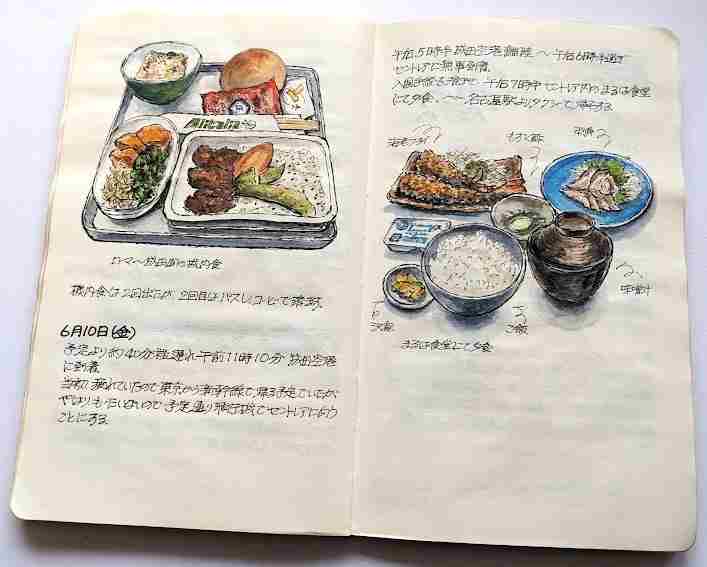 Alitalia
ローマ〜成田間の機内食
機内食は2回出たが、2回目はパスし、コーヒーで済ます。
6月10日(金)
予定より約40分程遅れ午前11時10分 成田空港
に到着
当初、疲れていたので東京から新幹線で帰る予定でいたが、
やはりもったいないので予定通り飛行機でセントレアに向う
ことにする
午后5時半成田空港離陸 〜 午后6時半過ぎ
セントレアに無事到着。
入国手続を済ませ、午后7時半セントレア内のまるは食堂
にて夕食。〜 名古屋駅よりタクシーで帰宅する
海老フライ
もずく酢
刺身
味噌汁
ご飯
まるは食堂にて夕食